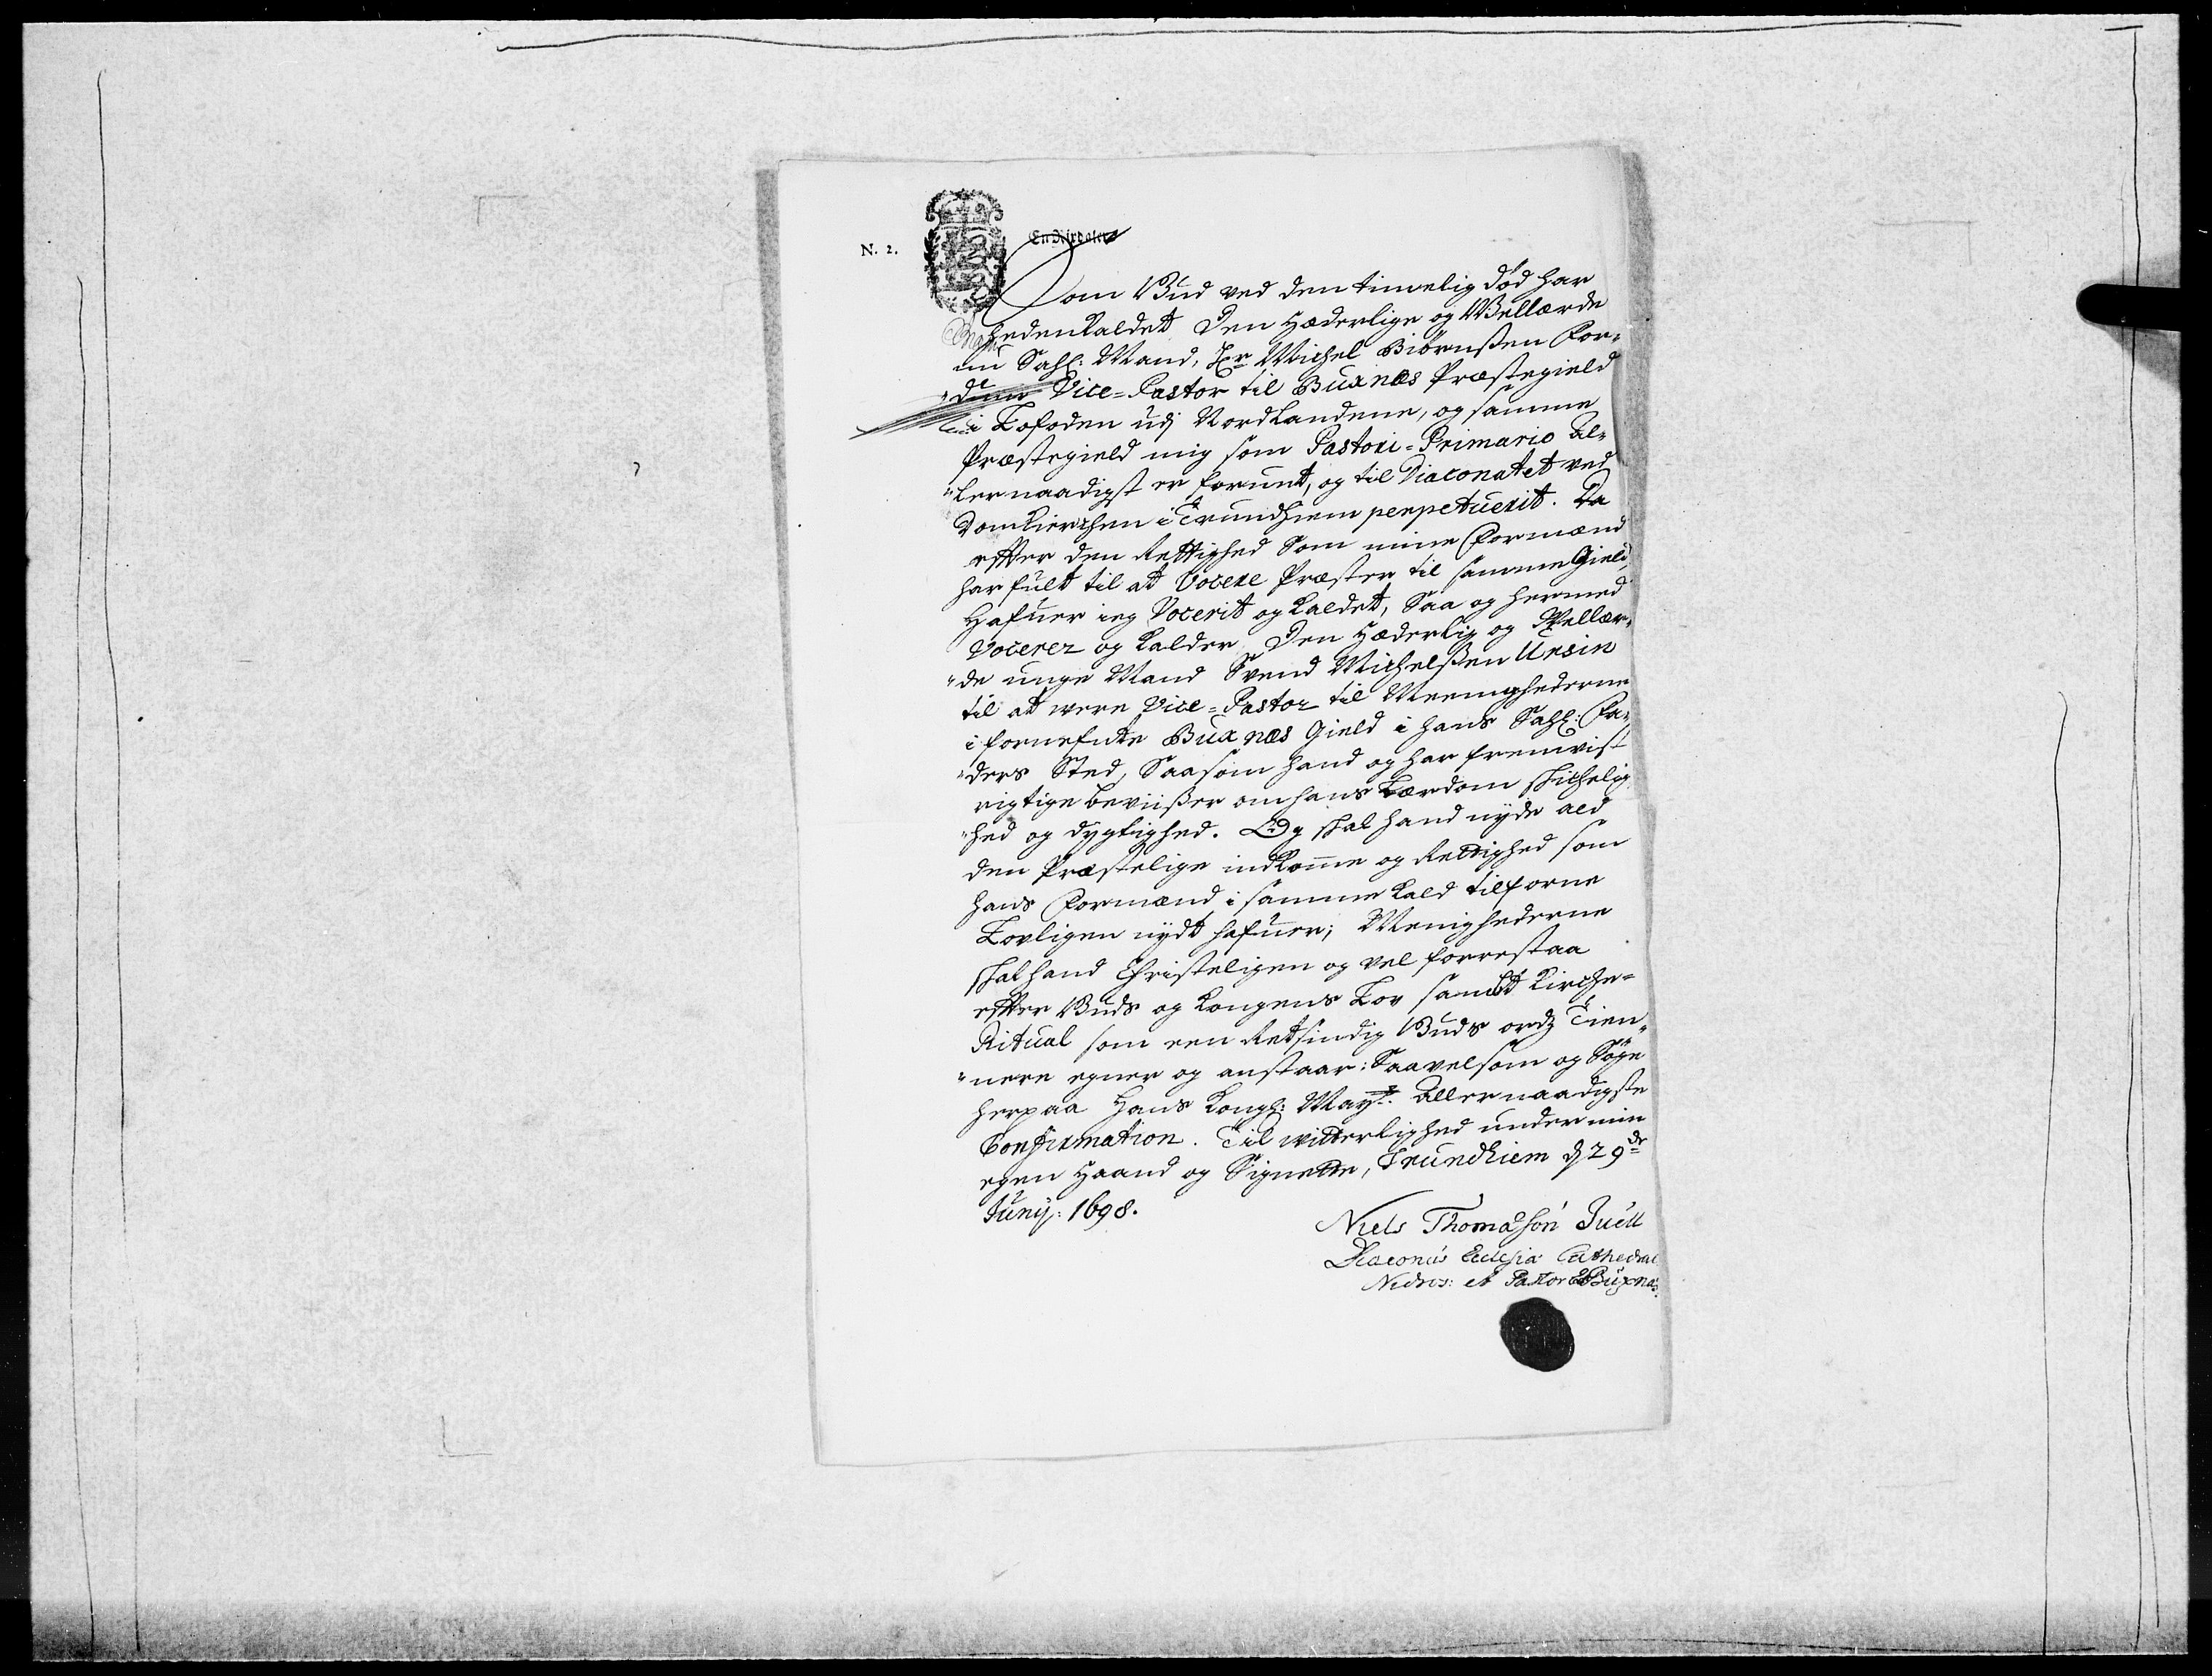 N. 2.
En Rixdaler
Som Gud ved den timelig död har
hedenkaldet Den Hæderlige og Wellærde
nu Sahl: Mand, Hr Michel Biörnßen For-
Vice-Pastor til Buxnæs Præstegield
i Lofoden udj Nordlandene, og samme
Præstegield mig som Pastori-Primario al-
"lernaadigst er forunt, og til Diaconatet ved
Domkierchen i Trundhiem perpetuerit. Da
efter den Rettighed som mine Formænd
har fult til at Vocere Præster til samme Gield,
Hafuer ieg Vocerit og kaldet, Saa og hermed
Vocerer og kalder Den Hæderlig og Wellær-
"de unge Mand Svend Michelßen Ursin
til at were Vice-Pastor til Meenighederne
i fornefnte Buxnæs Gield i hans Sahl: Fa-
"ders Sted, Saasom hand og har fremvist
rigtige beviißer om hans Lærdom skichelig
"hed og dygtighed. Og skal hand nyde ald
den Præstelige indkomme og Rettighed som
hans Formænd i samme kald tilforne
Lovligen nydt hafuer; Menighederne
skal hand Christeligen og vel forrestaa
efter Guds og kongens Lov samt Kirche-
Ritual som een Retsindig Guds ordz Tien-
"nere egner og anstaar: Saavelsom og Söge
herpaa Hans Kongl: Mayts: allernaadigste
Confirmation. Til witterlighed under min
egen Haand og Signette, Trundhiem d 29de
Junij: 1698.
Niels Thomasön Juell
Diaconus Eclesiæ Cathedral
Nidros: et Pastor Buxnæs.